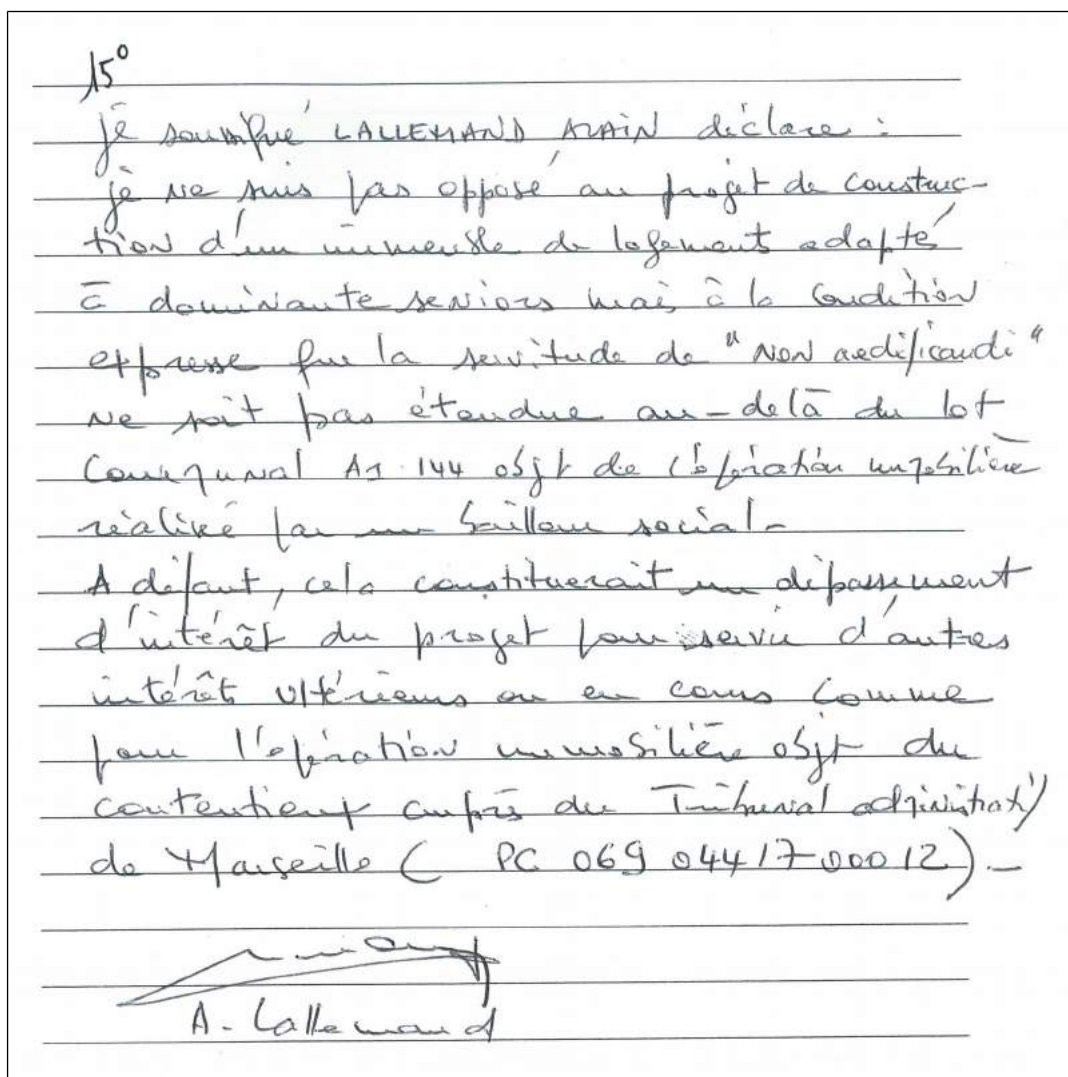 15°
je soussigné LALLEMAND ALAIN déclare :
je ne suis pas opposé au projet de construc-
tion d'un immeuble de logement adapté
à dominante seniors mais à la condition
expresse que la servitude de "NON aedificandi"
ne soit pas étendue au-delà du lot
Communal A1 144 objet de l'opération immobilière
réalisé par un bailleur social-
A défaut, cela constituerait un dépassement
d'intérêt du projet pour servir d'autres
intérêts ultérieurs ou en cours comme
pour l'opération immobilière objet du
contentieux auprès du Tribunal administratif
de Marseille ( PC 069 044 17 00012 ) -
A. Lallemand